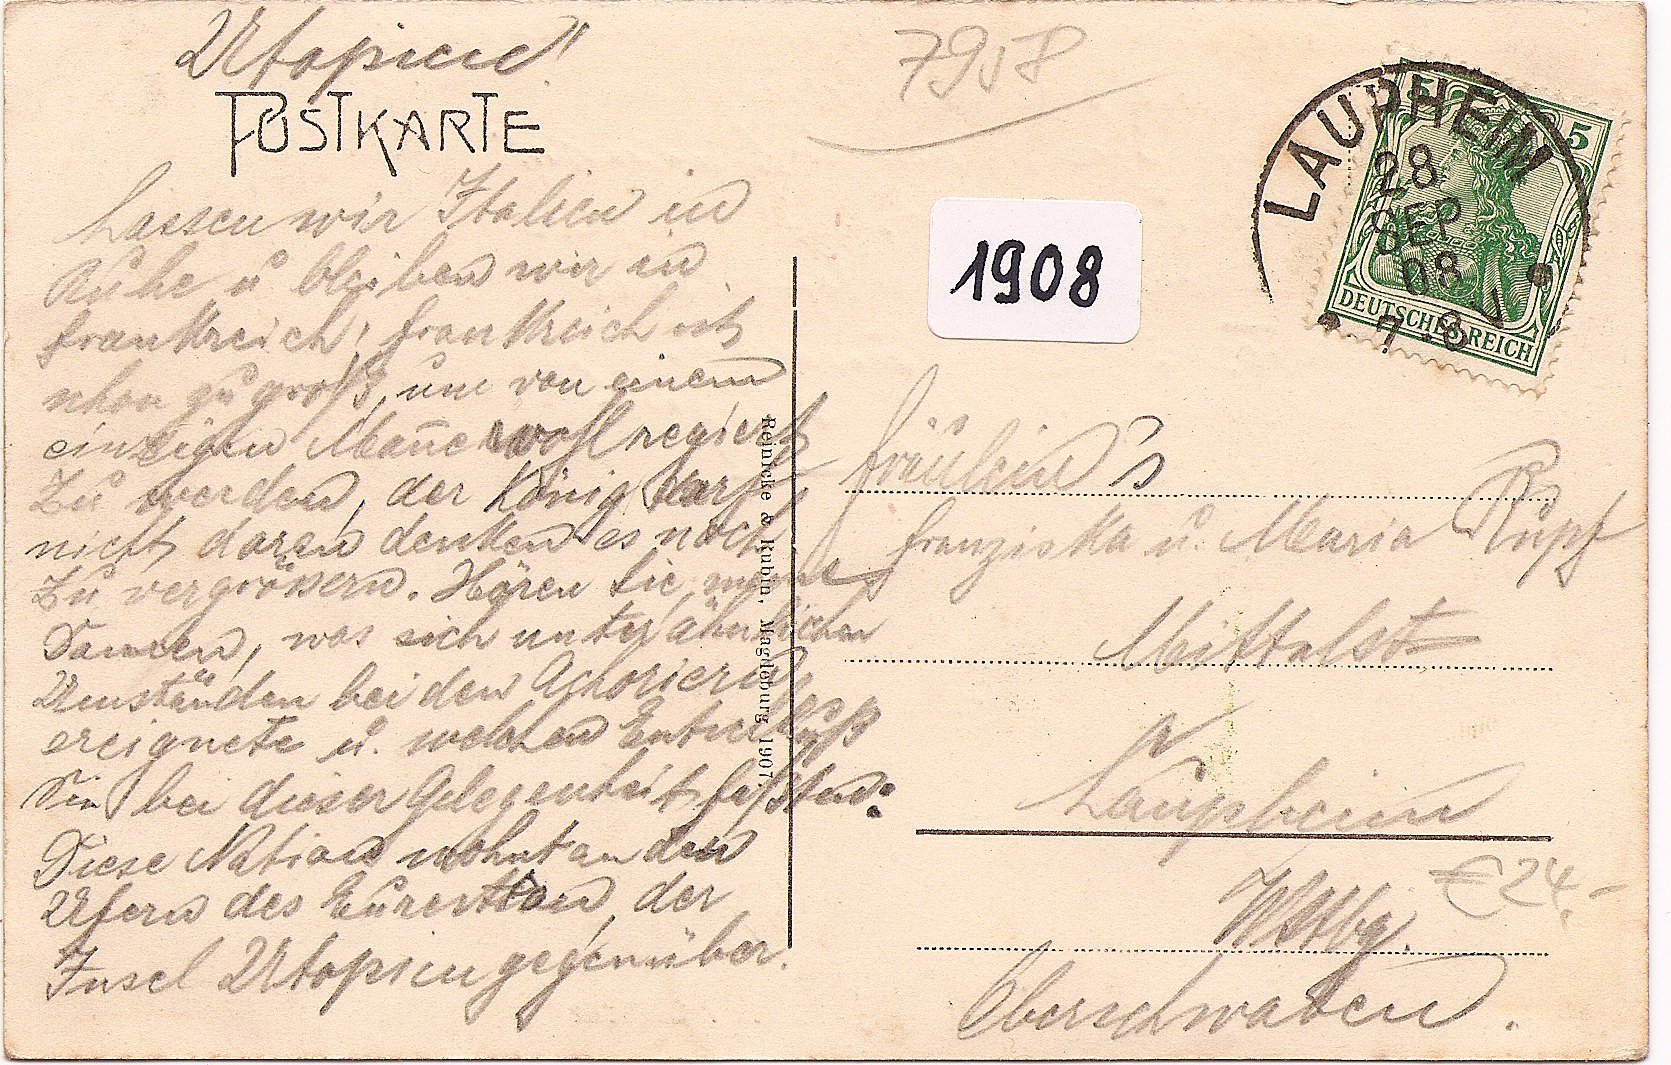 Utopien!
POSTKARTE
Lassen wir Italien in
Ruhe u bleiben wir in
Frankreich; Frankreich ist
schon zu groß, um von einem
einzigen Manne wohl regiert
zu werden, der König darf
nicht daran denken es noch
zu vergrößern. Hören Sie, meine
Damen, was sich unter ähnlichen
Umständen bei den Achoriern
ereignete u. welchen Entschluß
Sie bei dieser Gelegenheit faßten:
Diese Nation wohnt an den
Ufern des der
Insel Utopien gegenüber.
Reinicke & Rubin, Magdeburg 1907.
7958
1908
LAUPHEIM
28
SEP
08
7-8 V
5
DEUTSCHES REICH
Fräulein's
Franziska u. Maria Rupf
Mittelst
Laupheim
€ 24.-
Wttbg.
Oberschwaben.